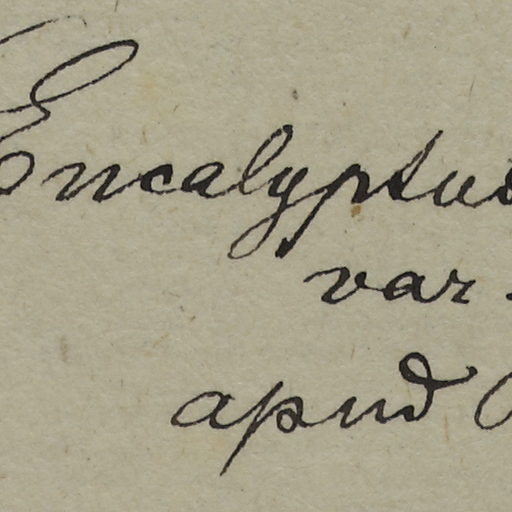 Eucalyptus
var.
apud